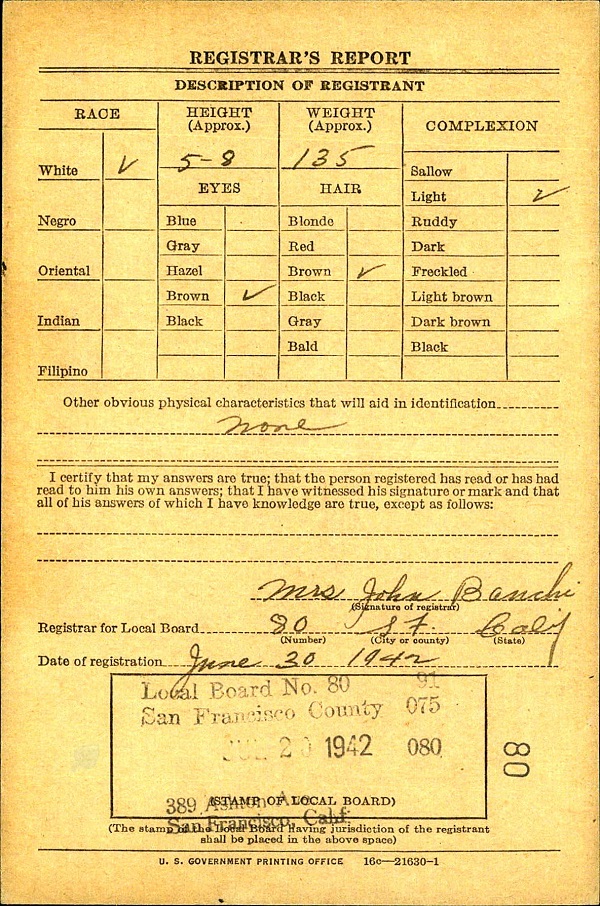 REGISTRAR'S REPORT
DESCRIPTION OF REGISTRANT
RACE
HEIGHT
(Approx.)
WEIGHT
(Approx.)
COMPLEXION
White ✓
5-8
135
Sallow
EYES
HAIR
Light ✓
Negro
Blue
Blonde
Ruddy
Gray
Red
Dark
Oriental
Hazel
Brown ✓
Freckled
Brown ✓
Black
Light brown
Indian
Black
Gray
Dark brown
Bald
Black
Filipino
Other obvious physical characteristics that will aid in identification
none
I certify that my answers are true; that the person registered has read or has had
read to him his own answers; that I have witnessed his signature or mark and that
all of his answers of which I have knowledge are true, except as follows:
Mrs John Banchi
(Signature of registrar)
Registrar for Local Board 80 S F. Calif
(Number) (City or county) (State)
Date of registration June 30 1942
Local Board No. 80 91
San Francisco County 075
20 1942 080
80
389 Ashton Ave
(STAMP OF LOCAL BOARD)
San Francisco, Calif.
(The stamp of the Local Board having jurisdiction of the registrant
shall be placed in the above space)
U. S. GOVERNMENT PRINTING OFFICE 16c—21630-1